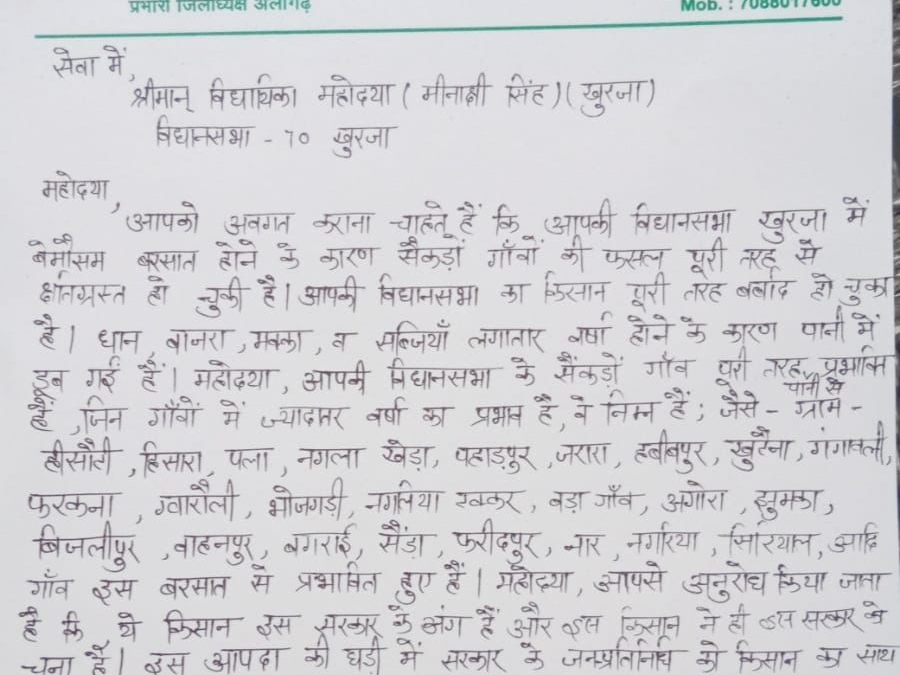 प्रभारी जिलाध्यक्ष अलीगढ़
Mob. : 7088017600
सेवा में,
श्रीमान् विधायिका महोदया ( मीनाक्षी सिंह ) ( खुरजा )
विधानसभा - 70 खुरजा
महोदया,
आपको अवगत कराना चाहते हैं कि आपकी विधानसभा खुरजा में
बेमौसम बरसात होने के कारण सैकड़ों गाँवों की फसल पूरी तरह से
क्षतिग्रस्त हो चुकी है। आपकी विधानसभा का किसान पूरी तरह बर्बाद हो चुका
है। धान, बाजरा, मक्का, व सब्जियाँ लगातार वर्षा होने के कारण पानी में
डूब गई हैं। महोदया, आपकी विधानसभा के सैंकड़ों गाँव पूरी तरह प्रभावित
पानी से
हैं, जिन गाँवों में ज्यादातर वर्षा का प्रभाव है, वे निम्न हैं; जैसे - ग्राम -
हीसौटी, हिसारा, पला, नगला खेड़ा, पहाड़पुर, जरारा, हबीबपुर, खुटैना, गंगावली,
फरकना, ग्वारौली, भोजगड़ी, नगलिया, बड़ा गाँव, अगोरा, झुमका,
बिजलीपुर, वाहनपुर, बगराई, सैंड़ा, फरीदपुर, नार, नगरिया, सिरियाल, आदि
गाँव इस बरसात से प्रभावित हुए हैं। महोदया, आपसे अनुरोध किया जाता
है कि ये किसान इस सरकार के अंग हैं और इस किसान ने ही इस सरकार को
चुना है। इस आपदा की घड़ी में सरकार के जनप्रतिनिधि को किसान का साथ